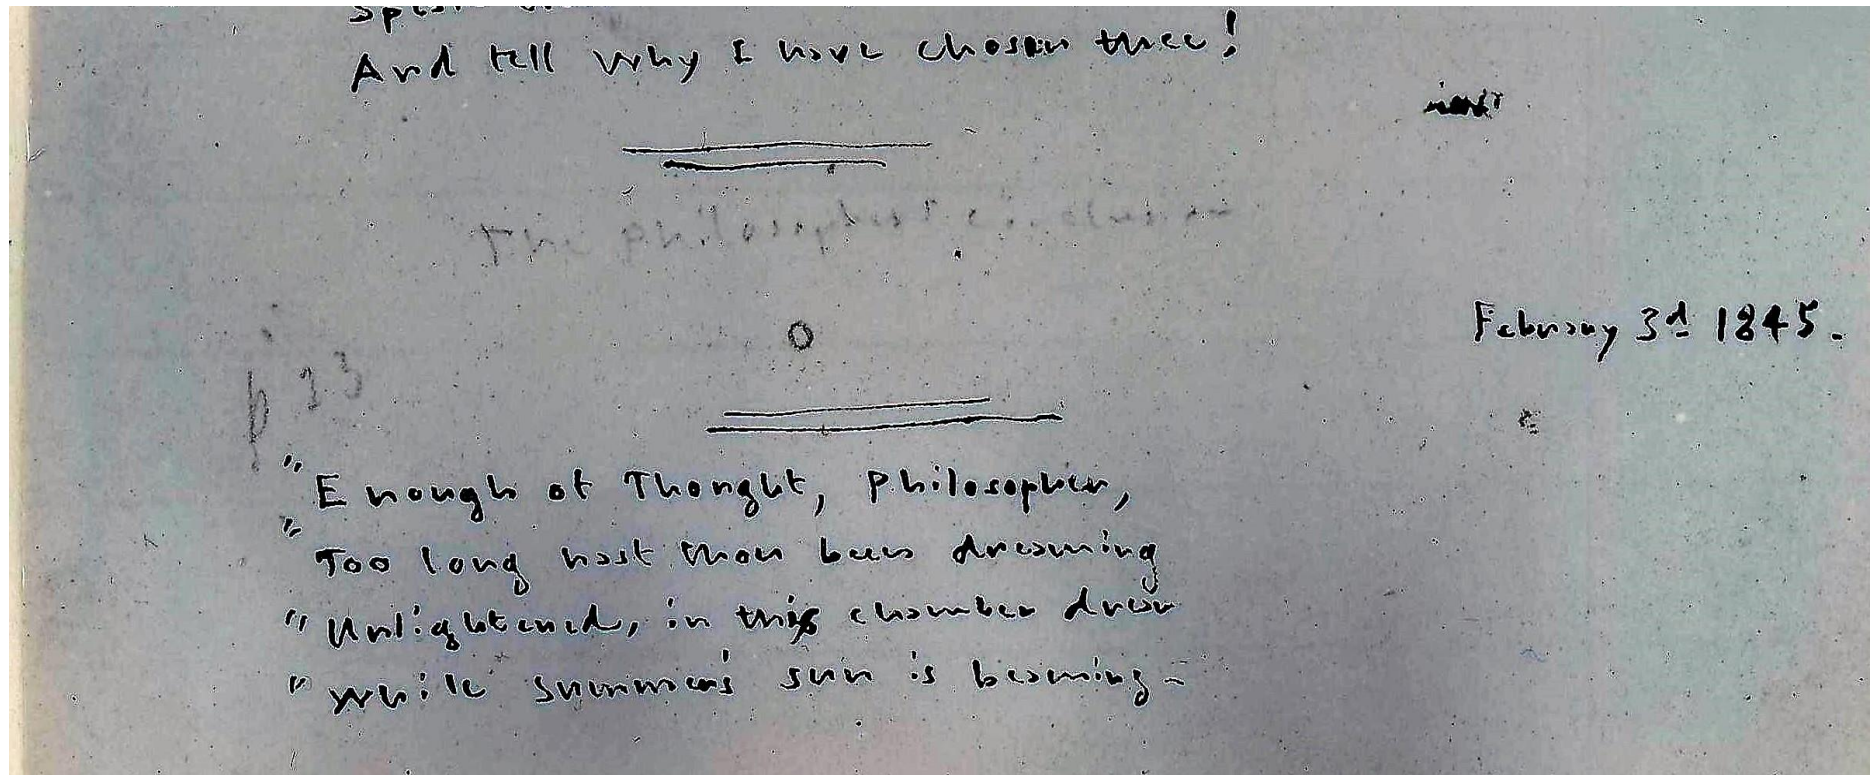 And tell why I have chosen thee!
The Philosopher's conclusion
February 3d 1845.
p 33
"Enough of Thought, Philosopher,
"Too long hast thou been dreaming
"Unlightened, in this chamber drear
"While summer's sun is beaming-